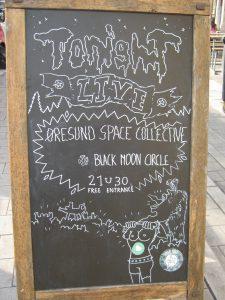 TONIGHT
LIVE
ØRESUND SPACE COLLECTIVE
BLACK MOON CIRCLE
21U30
FREE ENTRANCE